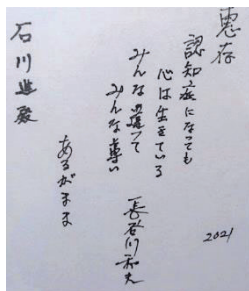 恵存
認知症になっても
心は生きている
みんな違って
みんな尊い
あるがまま
長谷川和夫
2021
石川進殿